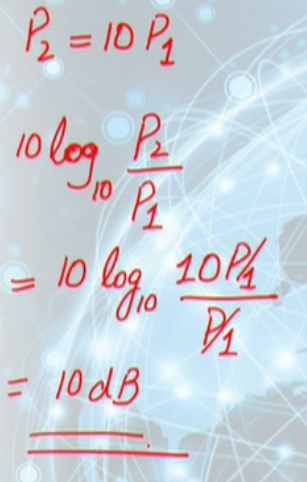 P₂ = 10 P₁
10 log₁₀ P₂/P₁
= 10 log₁₀ 10P₁/P₁
= 10 dB